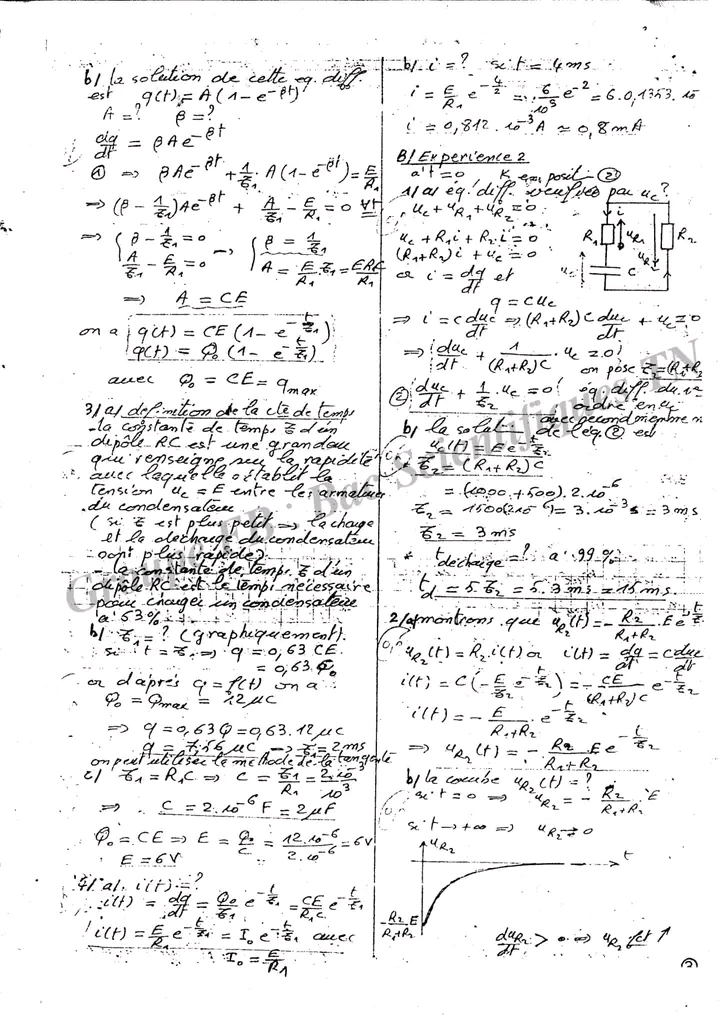 b/ la solution de cette eq. diff.
est q(t) = A(1 - e^-βt)
A = ? β = ?
dq/dt = βAe^-βt
① => βAe^-βt + 1/τ1 . A(1 - e^-βt) = E/R1
=> (β - 1/τ1)Ae^-βt + A/τ1 - E/R1 = 0 ∀t
=> { β - 1/τ1 = 0 => { β = 1/τ1
A/τ1 - E/R1 = 0 A = E/R1 . τ1 =
=> A = CE
on a q(t) = CE(1 - e^-t/τ1)
q(t) = Q0(1 - e^-t/τ1)
avec Q0 = CE = qmax
3/a/ definition de la cte de temps
- la constante de temps τ d'un
dipôle RC est une grandeur
qui renseigne sur la rapidité
avec laquelle s'établit la
tension uc = E entre les armatures
du condensateur
(si τ est plus petit => la charge
et la décharge du condensateur
sont plus rapide)
- la constante de temps τ d'un
dipôle RC est le temps nécessaire
pour charger un condensateur
à 63%
b/ τ1 = ? (graphiquement)
si t = τ1 => q = 0,63 CE
= 0,63.Q0
or d'après q = f(t) on a
Q0 = Qmax = 12 µC
=> q = 0,63Q = 0,63.12 µC
q = 7,56 µC -> τ1 = 2 ms
on peut utiliser le methode de la tangente
c/ τ1 = R1C => C = τ1/R1 = 2.10^-3/10^3
=> C = 2.10^-6 F = 2µF
Q0 = CE => E = Q0/C = 12.10^-6/2.10^-6 = 6V
E = 6V
4/a/ i(t) = ?
i(t) = dq/dt = Q0/τ1 e^-t/τ1 = CE/R1C e^-t/τ1
i(t) = E/R1 e^-t/τ1 = I0 e^-t/τ1 avec
I0 = E/R1
b/ i = ? si t = 4 ms
i = E/R1 e^-4/2 = 6/10^3 e^-2 = 6.0,1353.10
i = 0,812.10^-3 A ≃ 0,8 mA
B/ Experience 2
à t = 0, K en posit° ②
1/a/ éq. diff. verifiée par uc ?
uc + uR1 + uR2 = 0
uc + R1i + R2i = 0
(R1+R2)i + uc = 0
or i = dq/dt et
q = Cuc
i
R1
uR1
R2
uR2
uc
C
=> i = c duc/dt => (R1+R2)C duc/dt + uc = 0
=> duc/dt + 1/(R1+R2)C . uc = 0
on pose τ2 = (R1+R2
② duc/dt + 1/τ2 uc = 0 éq diff. du 1er
ordre en uc
avec second membre n
b/ la solut° de l'éq. ② est
uc(t) = E e^-t/τ2
τ2 = (R1+R2)C
= (1000 + 500).2.10^-6
τ2 = 1500(2.10^-6) = 3.10^-3 s = 3 ms
τ2 = 3 ms
* tdécharge = ? à 99%
td = 5.τ2 = 5.3 ms = 15 ms.
2/a/ montrons que uR2(t) = - R2/R1+R2 . E e^-t/τ2
uR2(t) = R2.i(t) or i(t) = dq/dt = c duc/dt
i(t) = C(-E/τ2 e^-t/τ2) = - CE/(R1+R2)C e^-t/τ2
i(t) = - E/R1+R2 . e^-t/τ2
=> uR2(t) = - R2/R1+R2 E e^-t/τ2
b/ la courbe uR2(t) = ?
si t = 0 => uR2 = - R2/R1+R2 . E
si t -> +∞ => uR2 -> 0
uR2
t
-R2/R1+R2 E
duR2/dt > 0 => uR2 fct ↑
②
Groupe FB : Bac Scientifiques TN